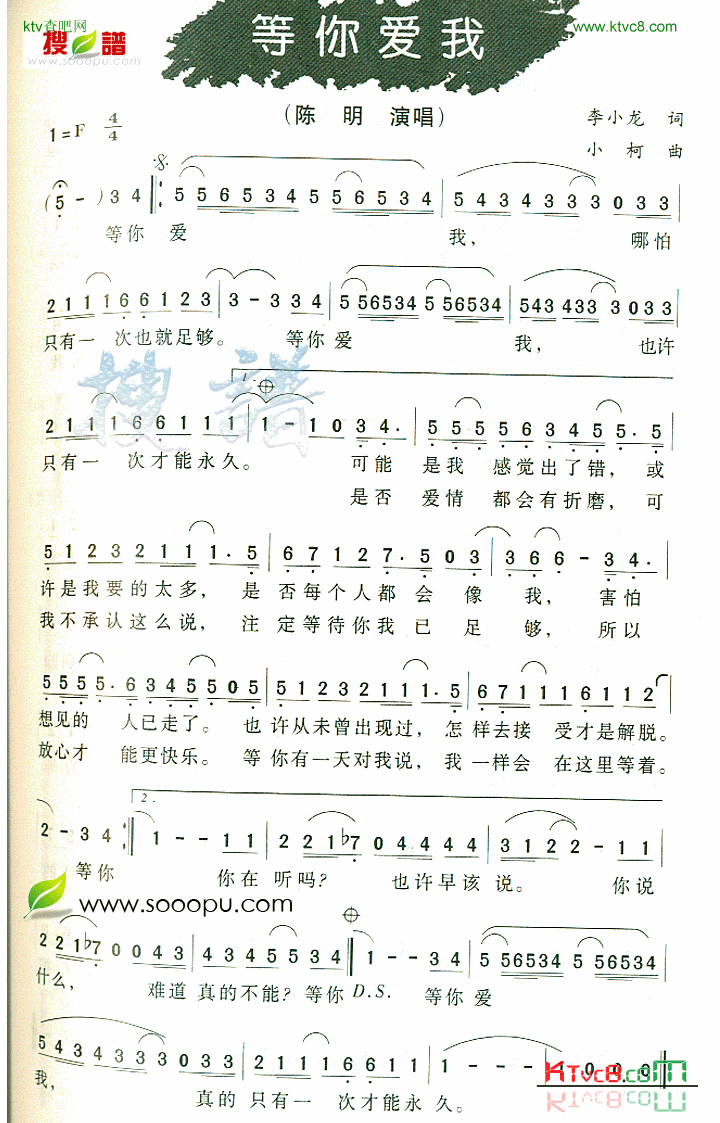 ktv查吧网
搜譜
www.sooopu.com
等你爱我
www.ktvc8.com
(陈 明 演唱)
1=F 4/4
李小龙 词
小 柯 曲
(5 - ) 3 4 5 5 6 5 3 4 5 5 6 5 3 4 5 4 3 4 3 3 3 0 3 3
等你 爱 我, 哪怕
2 1 1 1 6 6 1 2 3 3 - 3 3 4 5 5 6 5 3 4 5 5 6 5 3 4 5 4 3 4 3 3 3 0 3 3
只有一 次也就足够。 等你 爱 我, 也许
搜譜
1.
2 1 1 1 6 6 1 1 1 1 - 1 0 3 4 . 5 5 5 5 6 3 4 5 5 . 5
只有一 次才能永久。 可能 是我 感觉出了错, 或
是否 爱情 都会有折磨, 可
5 1 2 3 2 1 1 1 . 5 6 7 1 2 7 . 5 0 3 3 6 6 - 3 4 .
许是我要的太多, 是 否每个人都 会 像 我, 害怕
我不承认这么说, 注 定等待你我 已 足 够, 所以
5 5 5 5 . 6 3 4 5 5 0 5 5 1 2 3 2 1 1 1 . 5 6 7 1 1 1 6 1 1 2
想见的 人已走了。 也 许从未曾出现过, 怎 样去接 受才是解脱。
放心才 能更快乐。 等 你有一天对我说, 我 一样会 在这里等着。
2.
2 - 3 4 1 - - 1 1 2 2 1 ♭7 0 4 4 4 4 3 1 2 2 - 1 1
等你 你在 听吗? 也许早该 说。 你说
www.sooopu.com
2 2 1 ♭7 0 0 4 3 4 3 4 5 5 3 4 1 - - 3 4 5 5 6 5 3 4 5 5 6 5 3 4
什么, 难道 真的不能? 等你 D.S. 等你 爱
5 4 3 4 3 3 3 0 3 3 2 1 1 1 6 6 1 1 1 - - - 1 0 0 0
我, 真的 只有一 次才能永 久。
KTvc8.com